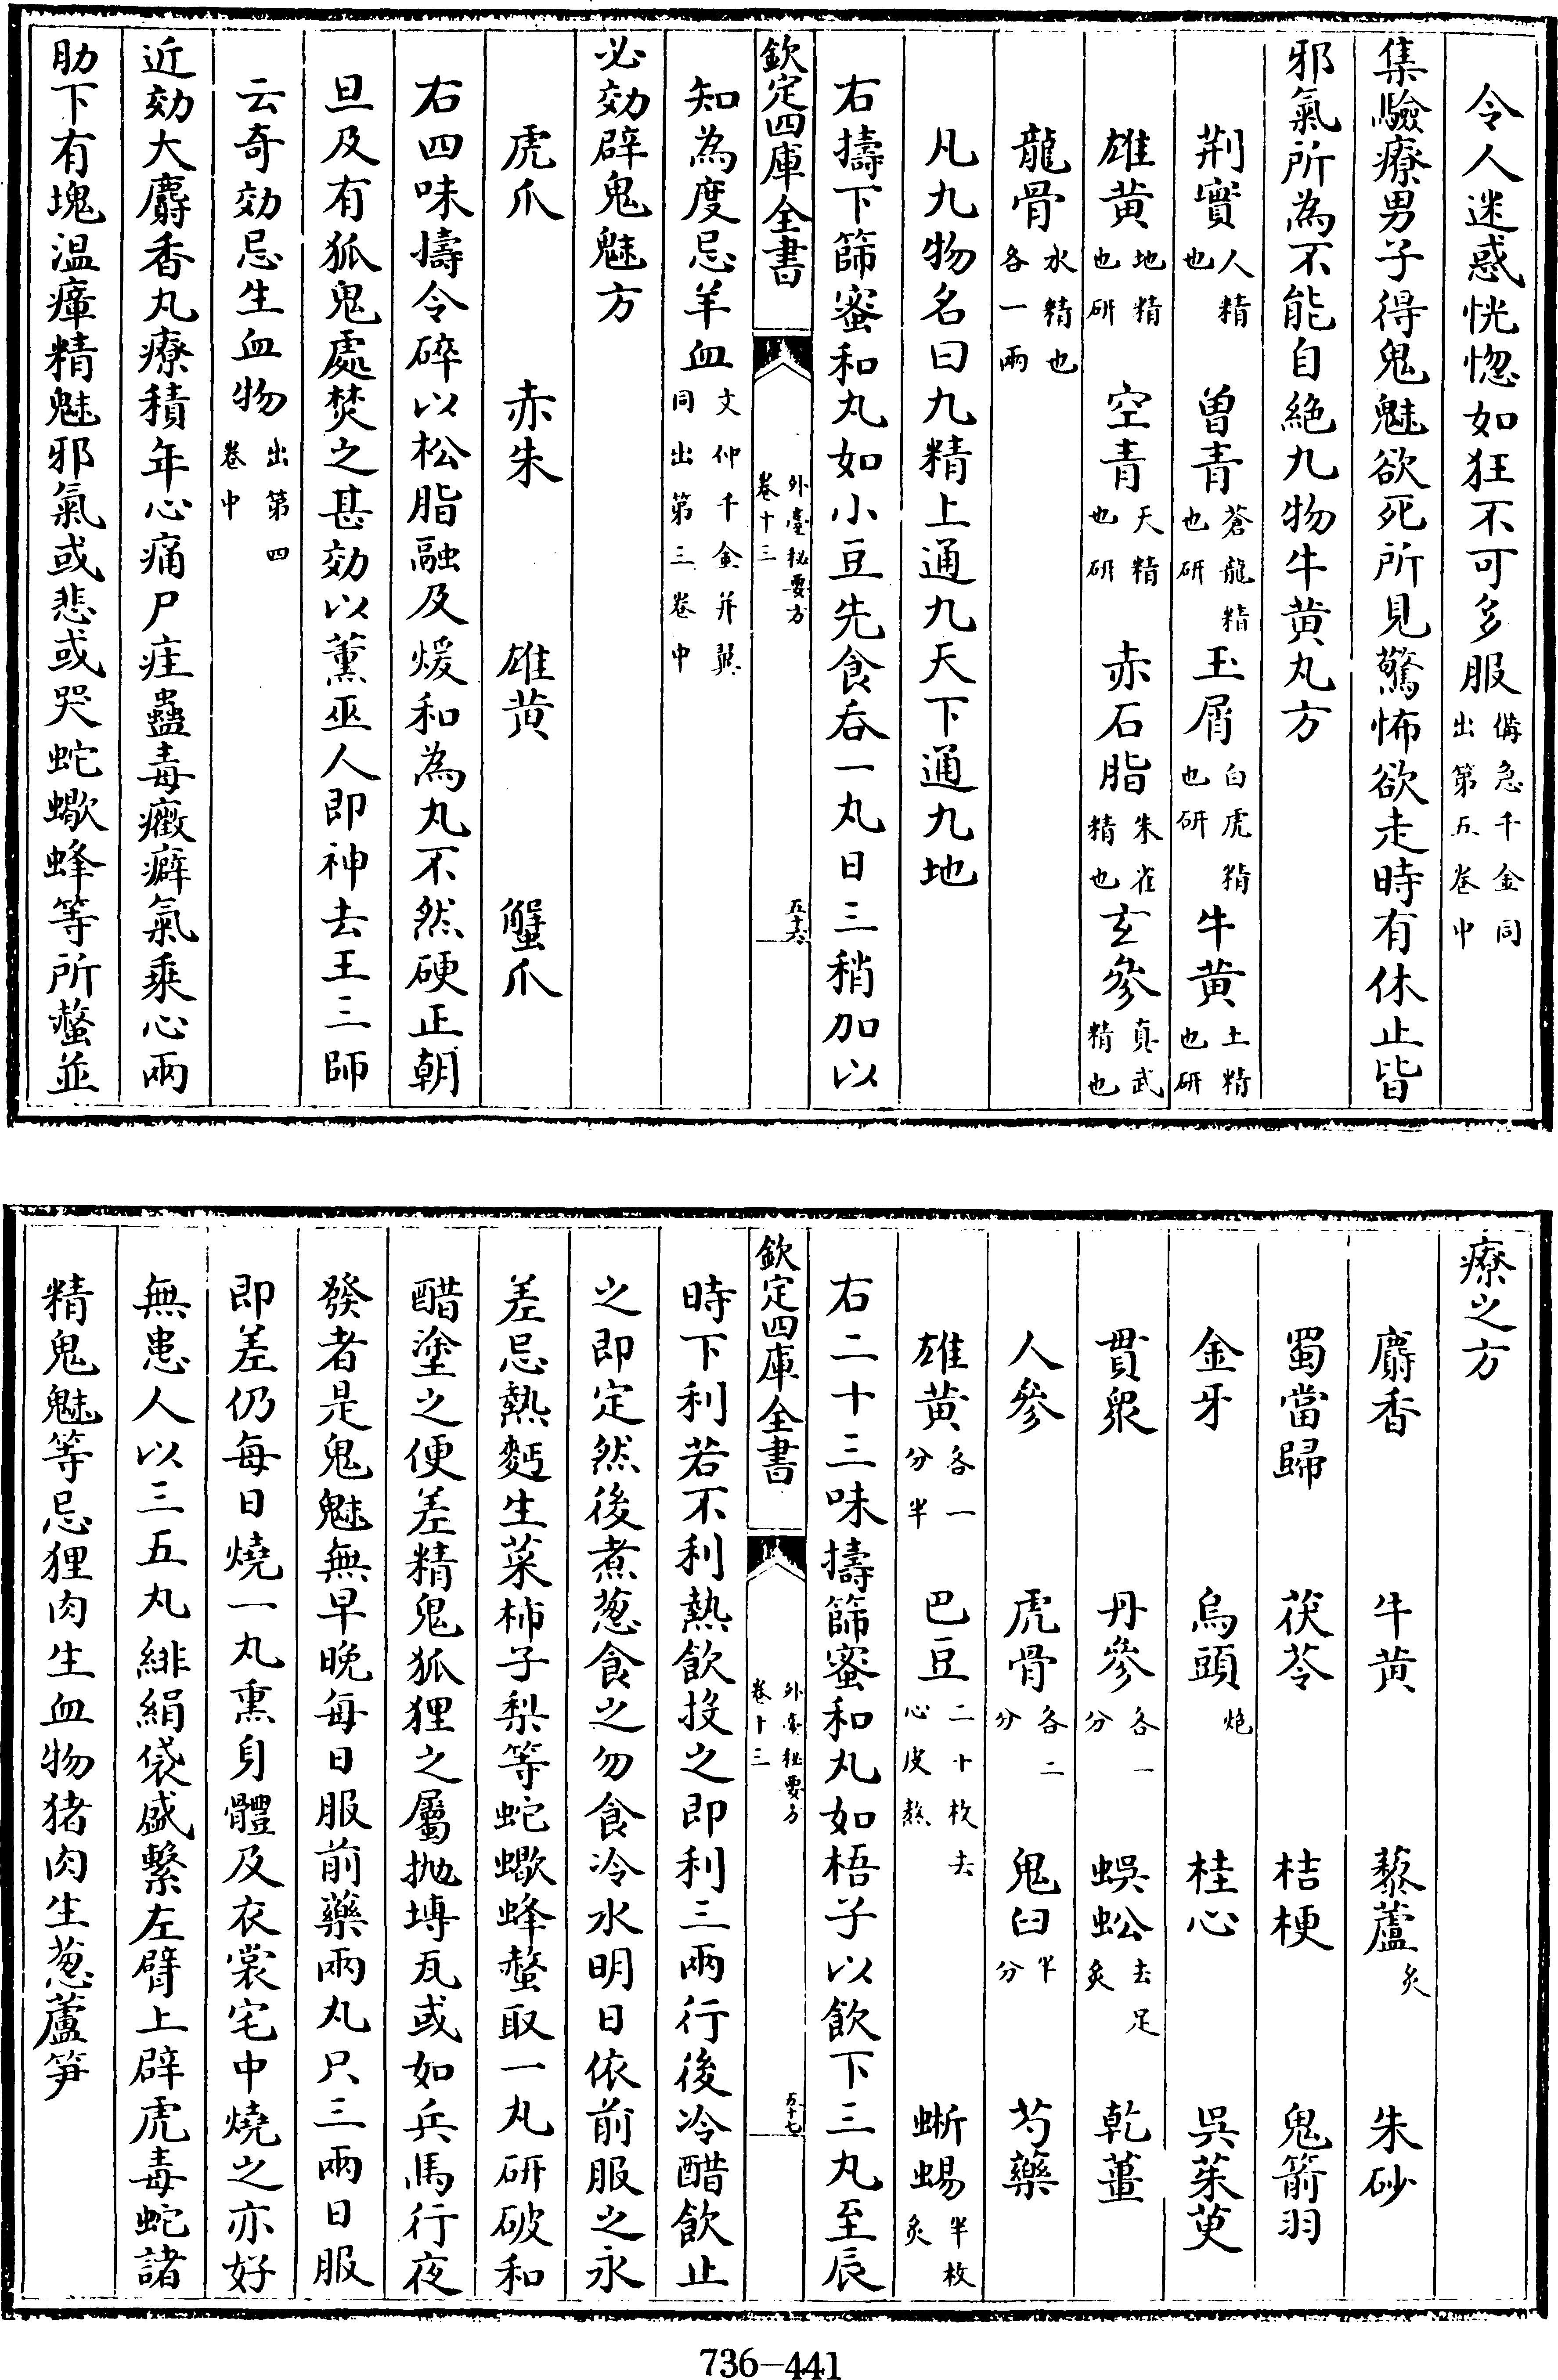 令人迷惑恍惚如狂不可多服備急千金同出第五卷中
集驗療男子得鬼魅欲死所見驚怖欲走時有休止皆
邪氣所為不能自絕九物牛黄丸方
荆實人精也 曾青蒼龍精也研 玉屑白虎精也研 牛黄土精也研
雄黄地精也研 空青天精也研 赤石脂朱雀精也 玄參真武精也
龍骨水精也各一兩
凡九物名曰九精上通九天下通九地
右擣下篩蜜和丸如小豆先食吞一丸日三稍加以
欽定四庫全書 外臺秘要方卷十三 五十六
知為度忌羊血文仲千金并翼同出第三卷中
必効辟鬼魅方
虎爪 赤朱 雄黄 蟹爪
右四味擣令碎以松脂融及煖和為丸不然硬正朝
旦及有狐鬼處焚之甚効以薰巫人即神去王三師
云奇効忌生血物出第四卷中
近効大麝香丸療積年心痛尸疰蠱毒癥癖氣乘心兩
肋下有塊温瘴精魅邪氣或悲或哭蛇蠍蜂等所螫並
療之方
麝香 牛黄 藜蘆炙 朱砂
蜀當歸 茯苓 桔梗 鬼箭羽
金牙 烏頭炮 桂心 吳茱萸
貫衆 丹參各一分 蜈蚣去足炙 乾薑
人參 虎骨各二分 鬼臼半分 芍藥
雄黄各一分半 巴豆二十枚去心皮熬 蜥蜴半枚炙
右二十三味擣篩蜜和丸如梧子以飲下三丸至辰
欽定四庫全書 外臺秘要方卷十三 五十七
時下利若不利熱飲投之即利三兩行後冷醋飲止
之即定然後煮葱食之勿食冷水明日依前服之永
差忌熱麫生菜柿子梨等蛇蠍蜂螫取一丸研破和
醋塗之便差精鬼狐狸之屬抛塼瓦或如兵馬行夜
發者是鬼魅無早晚每日服前藥兩丸只三兩日服
即差仍每日燒一丸熏身體及衣裳宅中燒之亦好
無患人以三五丸緋絹袋盛繫左臂上辟虎毒蛇諸
精鬼魅等忌狸肉生血物猪肉生葱蘆笋
736-441